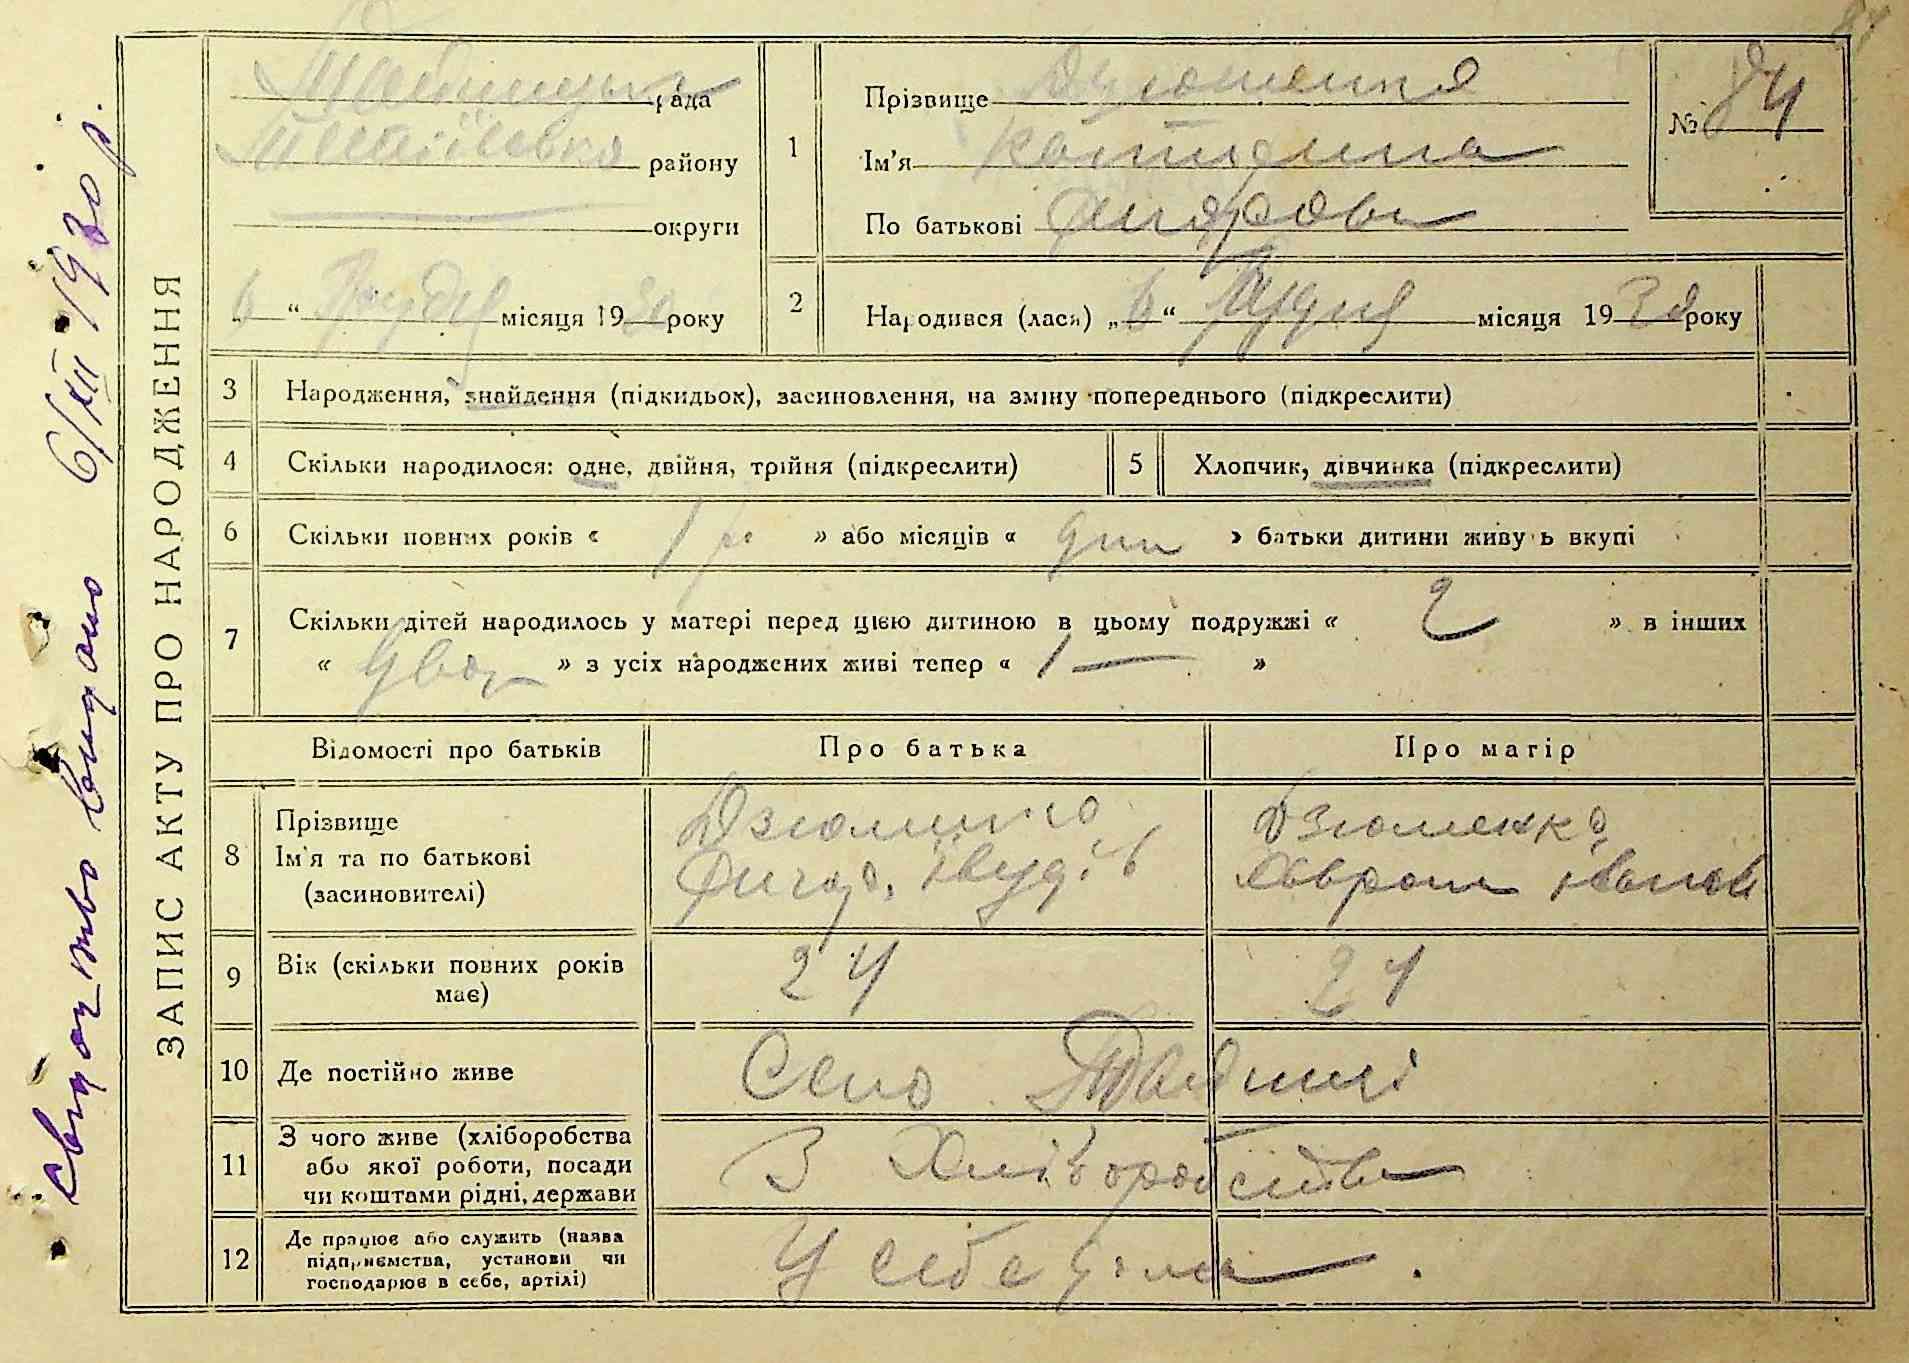 84
свідоцтво видано 6/XII 1930 р.
ЗАПИС АКТУ ПРО НАРОДЖЕННЯ
рада
району
округи
„6“ Грудня місяця 1930 року
1
Прізвище Дзюменко
Ім'я Катерина
По батькові
№ 84
2
Народився (лася) „6“ Грудня місяця 1930 року
3
Народження, знайдення (підкидьок), засиновлення, на зміну попереднього (підкреслити)
4
Скільки народилося: одне, двійня, трійня (підкреслити)
5
Хлопчик, дівчинка (підкреслити)
6
Скільки повних років « » або місяців « » батьки дитини живуть вкупі
7
Скільки дітей народилось у матері перед цією дитиною в цьому подружжі « 2 » в інших
« двоє » з усіх народжених живі тепер « 1 — »
Відомості про батьків
Про батька
Про матір
8
Прізвище
Ім'я та по батькові
(засиновителі)
Дзюменко
Дзюменко
Іванов
9
Вік (скільки повних років
має)
24
21
10
Де постійно живе
Село
11
З чого живе (хліборобства
або якої роботи, посади
чи коштами рідні, держави
З Хліборобства
12
Де працює або служить (назва
підприємства, установи чи
господарює в себе, артілі)
У себе дома.